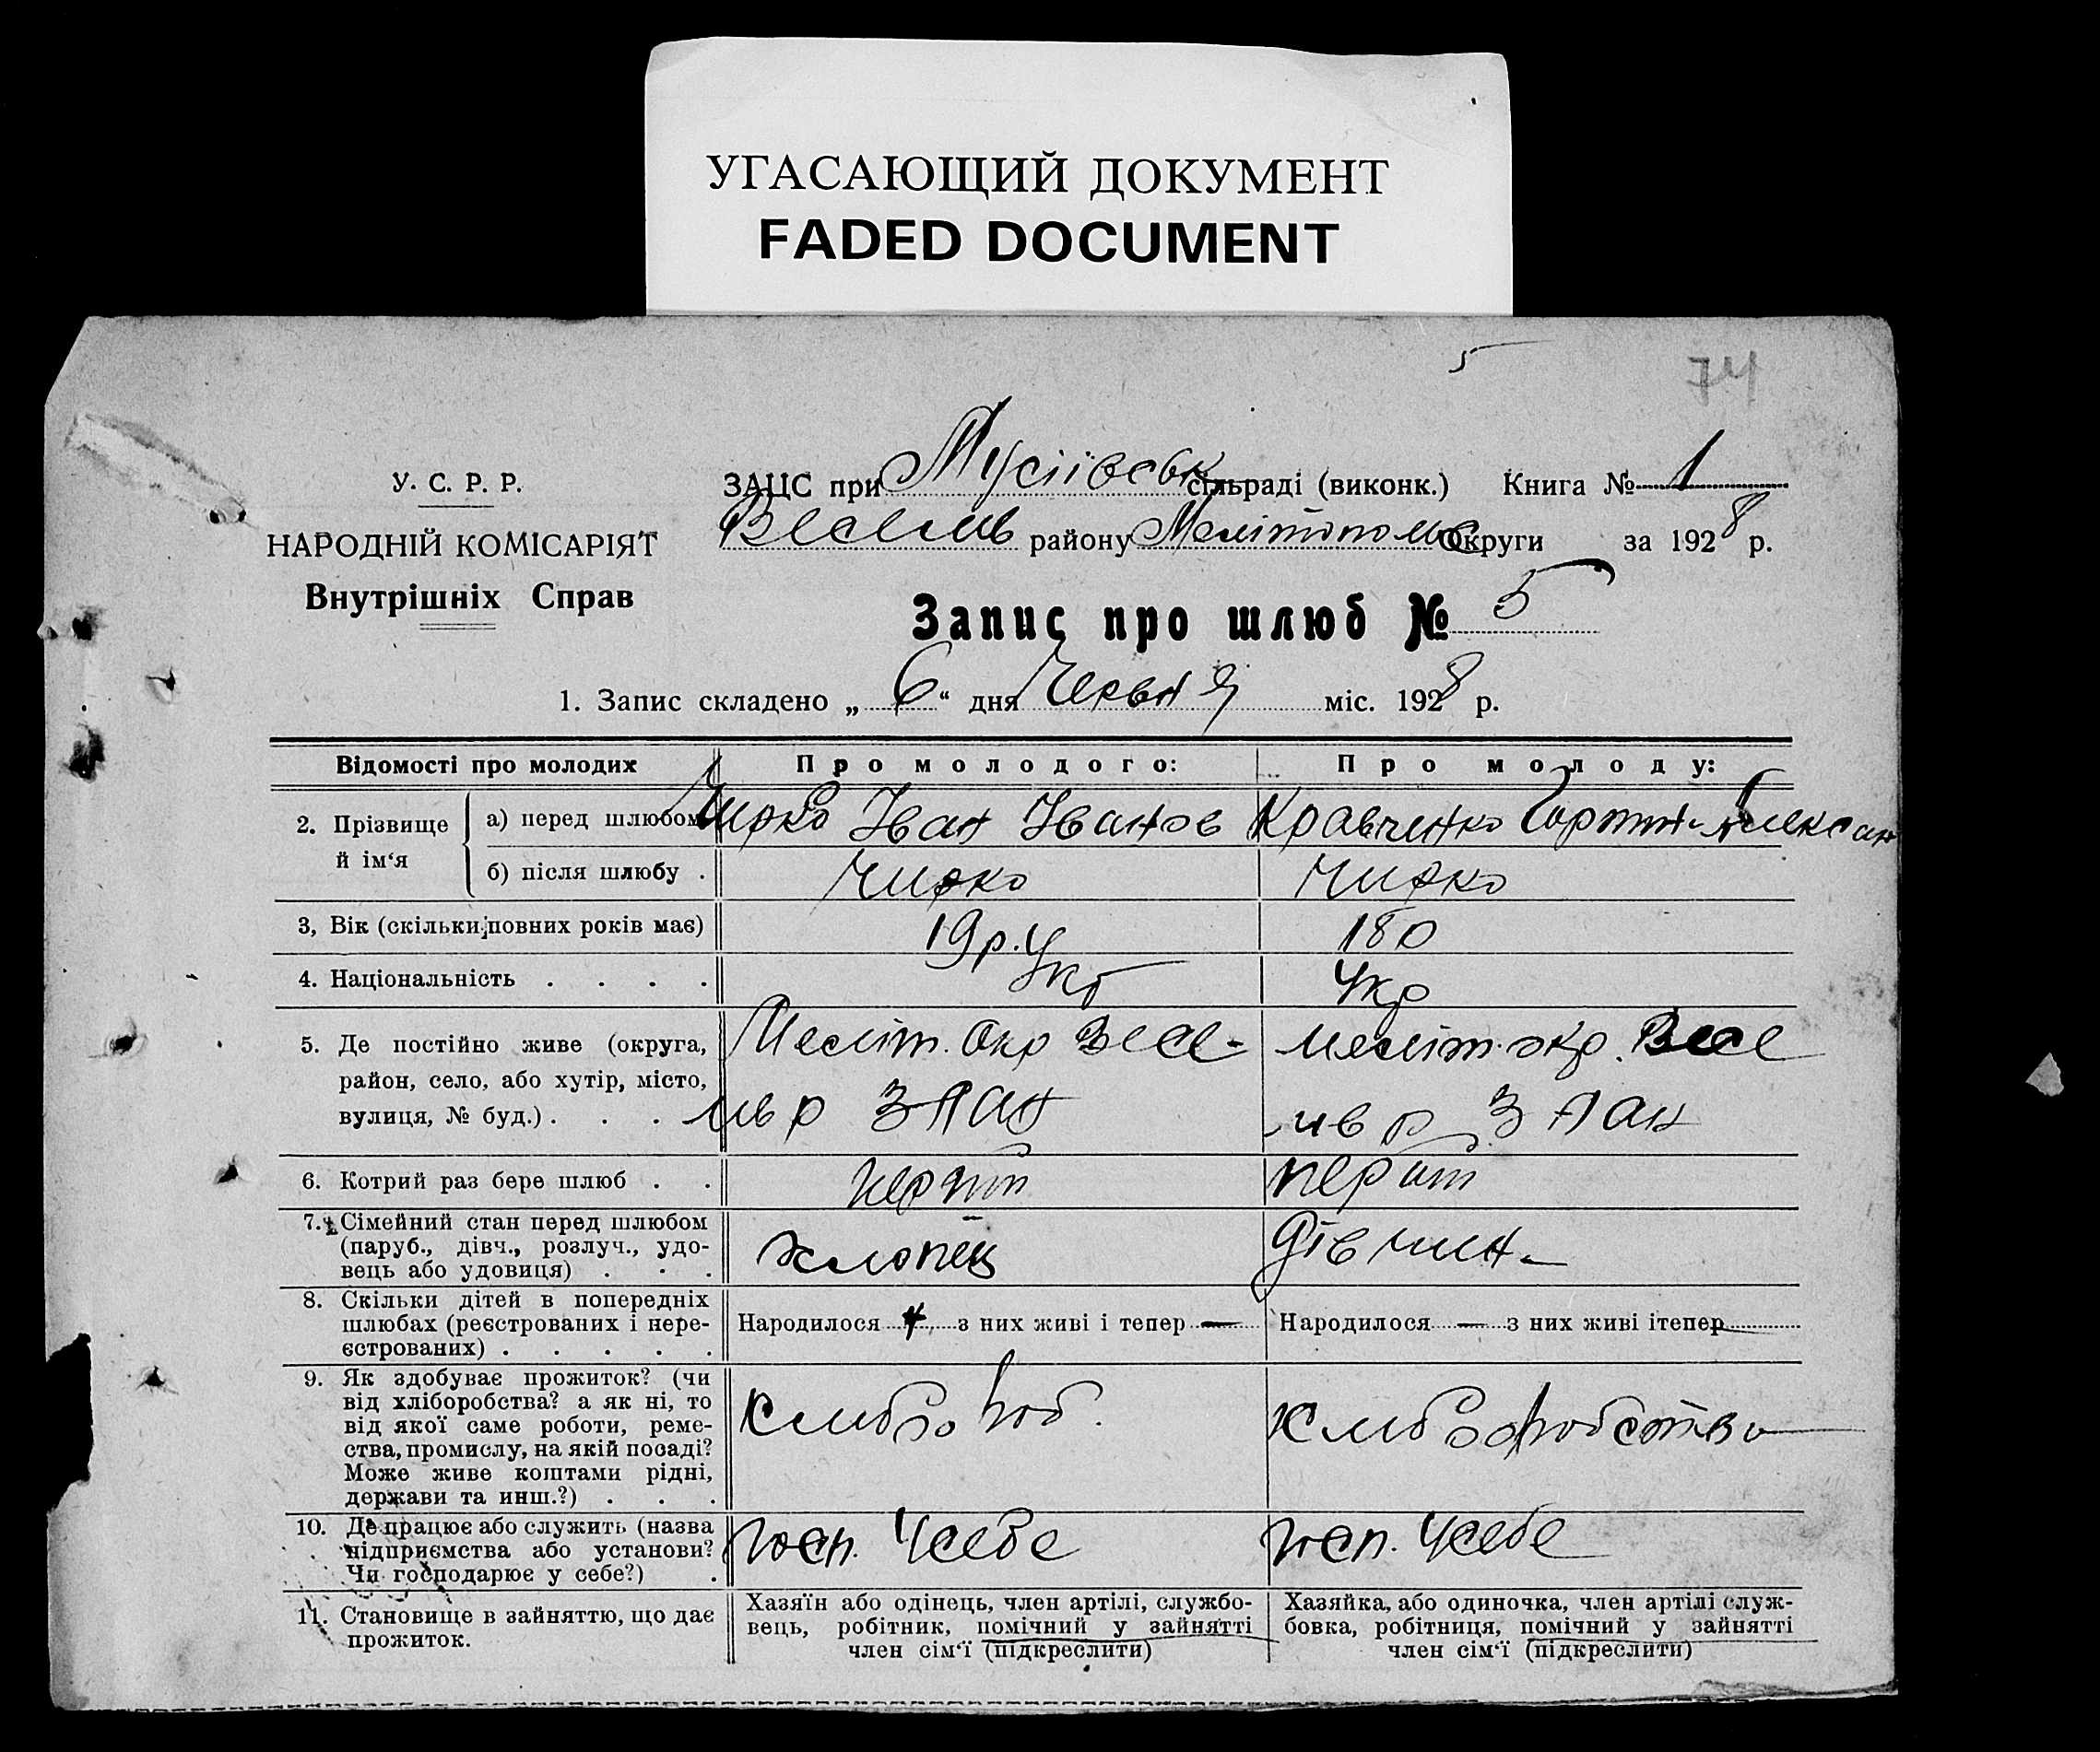 УГАСАЮЩИЙ ДОКУМЕНТ
FADED DOCUMENT
5
74
У. С. Р. Р.
НАРОДНІЙ КОМІСАРІЯТ
Внутрішніх Справ
ЗАЦС при Мусіївськ сільраді (виконк.) Книга № 1
Веселів району Мелітополь Округи за 1928 р.
Запис про шлюб № 5
1. Запис складено „ 6 “ дня Червня міс. 1928 р.
Відомості про молодих
Про молодого:
Про молоду:
2. Прізвище й ім‘я
а) перед шлюбом
Чирко Іван Іванов
Кравченко Олексан
б) після шлюбу .
Чирко
Чирко
3, Вік (скільки повних років має)
19 р.
18 р
4. Національність . . . .
Укр
Укр
5. Де постійно живе (округа,
район, село, або хутір, місто,
вулиця, № буд.) . . .
Меліт. Окр Весе-
лів р
меліт. окр. Весе
лів р
6. Котрий раз бере шлюб . .
7. Сімейний стан перед шлюбом
(паруб., дівч., розлуч., удо-
вець або удовиця) . . .
хлопець
дівчина
8. Скільки дітей в попередніх
шлюбах (реєстрованих і нере-
єстрованих) . . . . .
Народилося з них живі і тепер —
Народилося — з них живі ітепер
9. Як здобуває прожиток? (чи
від хліборобства? а як ні, то
від якої саме роботи, реме-
ства, промислу, на якій посаді?
Може живе коштами рідні,
держави та инш.?) . . .
хлібороб.
хліборобство
10. Де працює або служить (назва
підприємства або установи?
Чи господарює у себе?) .
госп. Усебе
госп. Усебе
11. Становище в зайняттю, що дає
прожиток.
Хазяїн або одінець, член артілі, службо-
вець, робітник, помічний у зайнятті
член сім‘ї (підкреслити)
Хазяйка, або одиночка, член артілі служ-
бовка, робітниця, помічний у зайнятті
член сім‘ї (підкреслити)